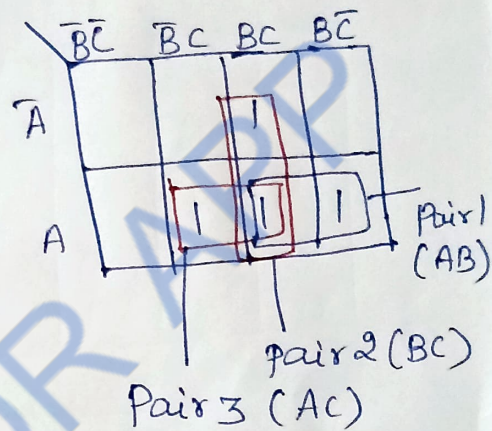 B̅C̅ B̅C BC BC̅
A̅ 1
A 1 1 1
Pair 1
(AB)
pair 2 (BC)
Pair 3 (AC)
OR APP